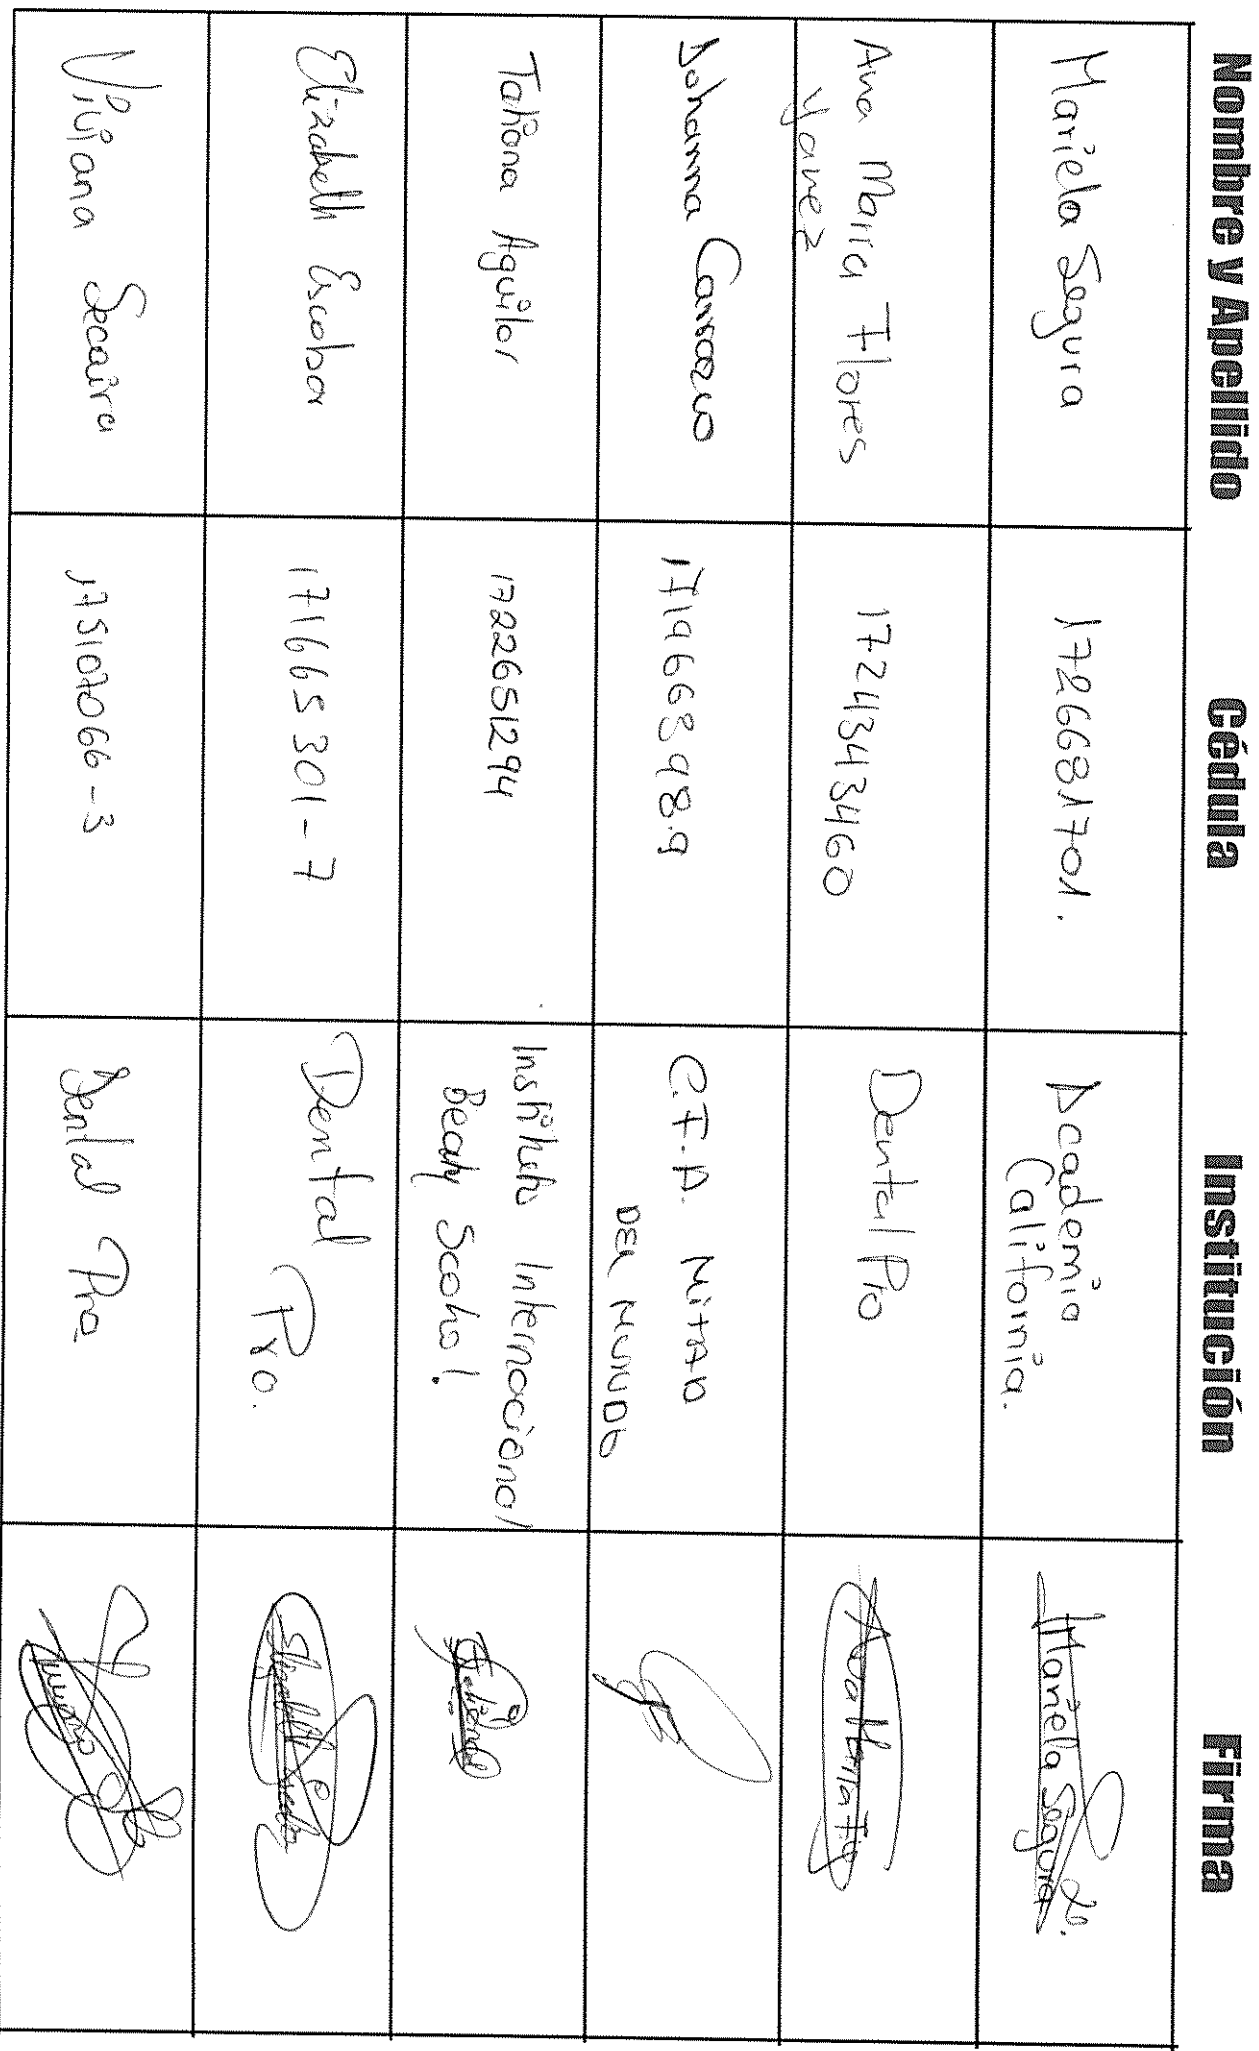 Nombre y Apellido Cédula Institución Firma
Mariela Segura 1726681701. Academia
California. Mariela Segura
Ana María Flores
Yanez 1724343460 Dental Pro Ana María Flo
Johanna Carrasco 171966898.9 C.F.A. MITAD
DEL MUNDO
Tatiana Aguilar 1722651294 Instituto Internacional
Beaty Scohol. Tatiana
Elizabeth Escobar 171665301-7 Dental
Pro. Elizabeth Escobar
Viviana Secaira 175107066-3 Dental Pro